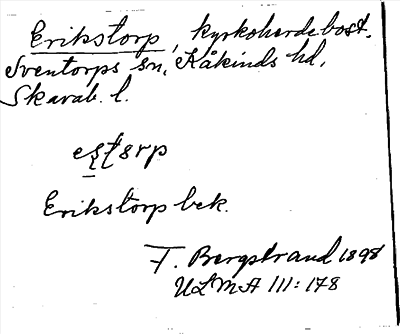 Erikstorp, kyrkoherdebost.
Sventorps sn, Kåkinds hd,
Skarab. l.
Erikstorp bek.
F. Bergstrand 1898
ULMA 111:178